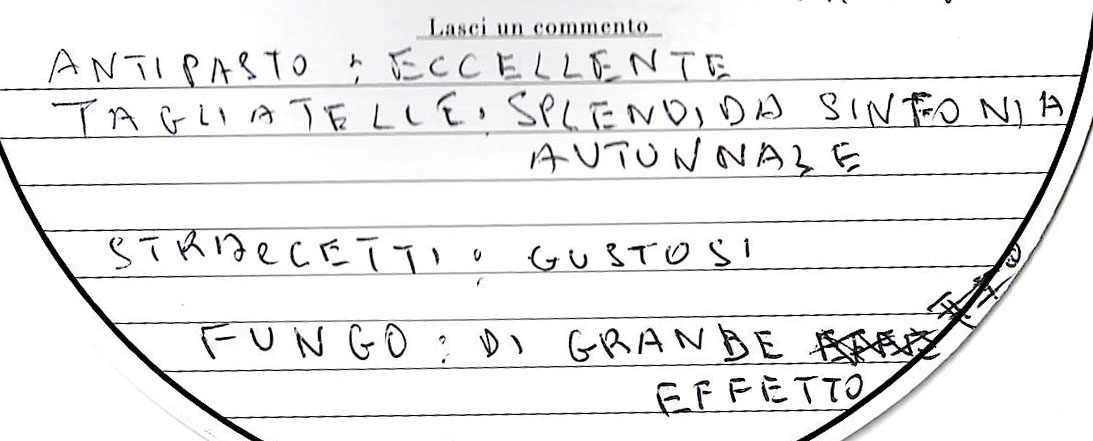 Lasci un commento
ANTIPASTO : ECCELLENTE
TAGLIATELLE. SPLENDIDA SINFONIA
AUTUNNALE
STRACCETTI : GUSTOSI
FUNGO : DI GRANDE
EFFETTO